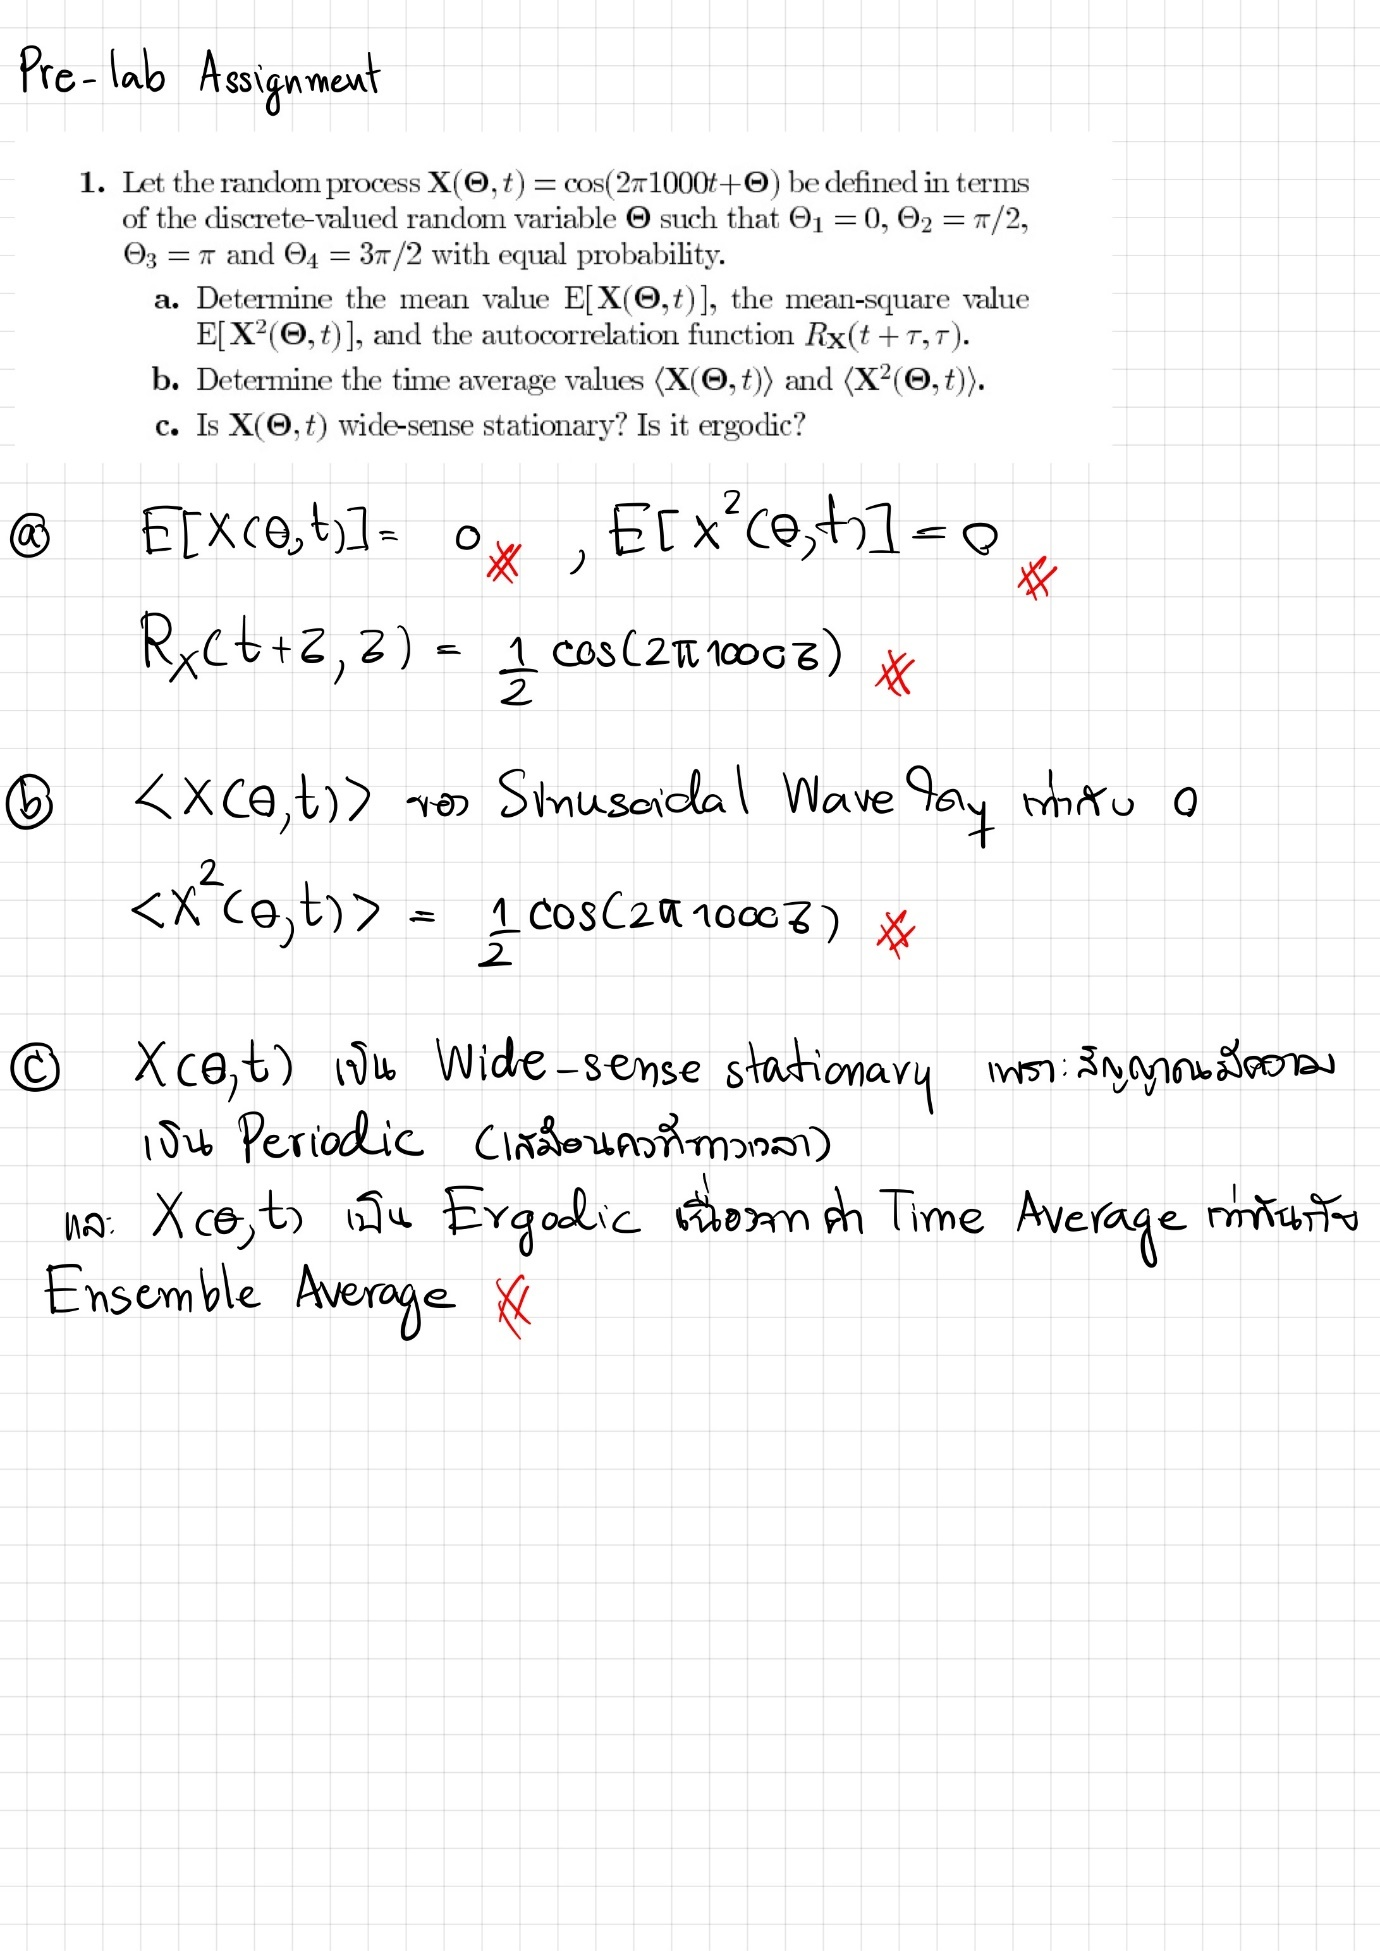 Pre-lab Assignment
1. Let the random process X(Θ, t) = cos(2π1000t+Θ) be defined in terms
of the discrete-valued random variable Θ such that Θ₁ = 0, Θ₂ = π/2,
Θ₃ = π and Θ₄ = 3π/2 with equal probability.
a. Determine the mean value E[X(Θ,t)], the mean-square value
E[X²(Θ,t)], and the autocorrelation function R_X(t + τ, τ).
b. Determine the time average values ⟨X(Θ,t)⟩ and ⟨X²(Θ,t)⟩.
c. Is X(Θ,t) wide-sense stationary? Is it ergodic?
ⓐ E[X(θ,t)] = 0 , E[X²(θ,t)] = 0
R_X(t+τ, τ) = 1/2 cos(2π1000τ)
ⓑ <X(θ,t)> ของ Sinusoidal Wave ใดๆ เท่ากับ 0
<X²(θ,t)> = 1/2 cos(2π1000τ)
ⓒ X(θ,t) เป็น Wide-sense stationary เพราะสัญญาณมีความ
เป็น Periodic (เสมือนคงที่ทางเวลา)
และ X(θ,t) เป็น Ergodic เนื่องจาก ค่า Time Average เท่ากันกับ
Ensemble Average